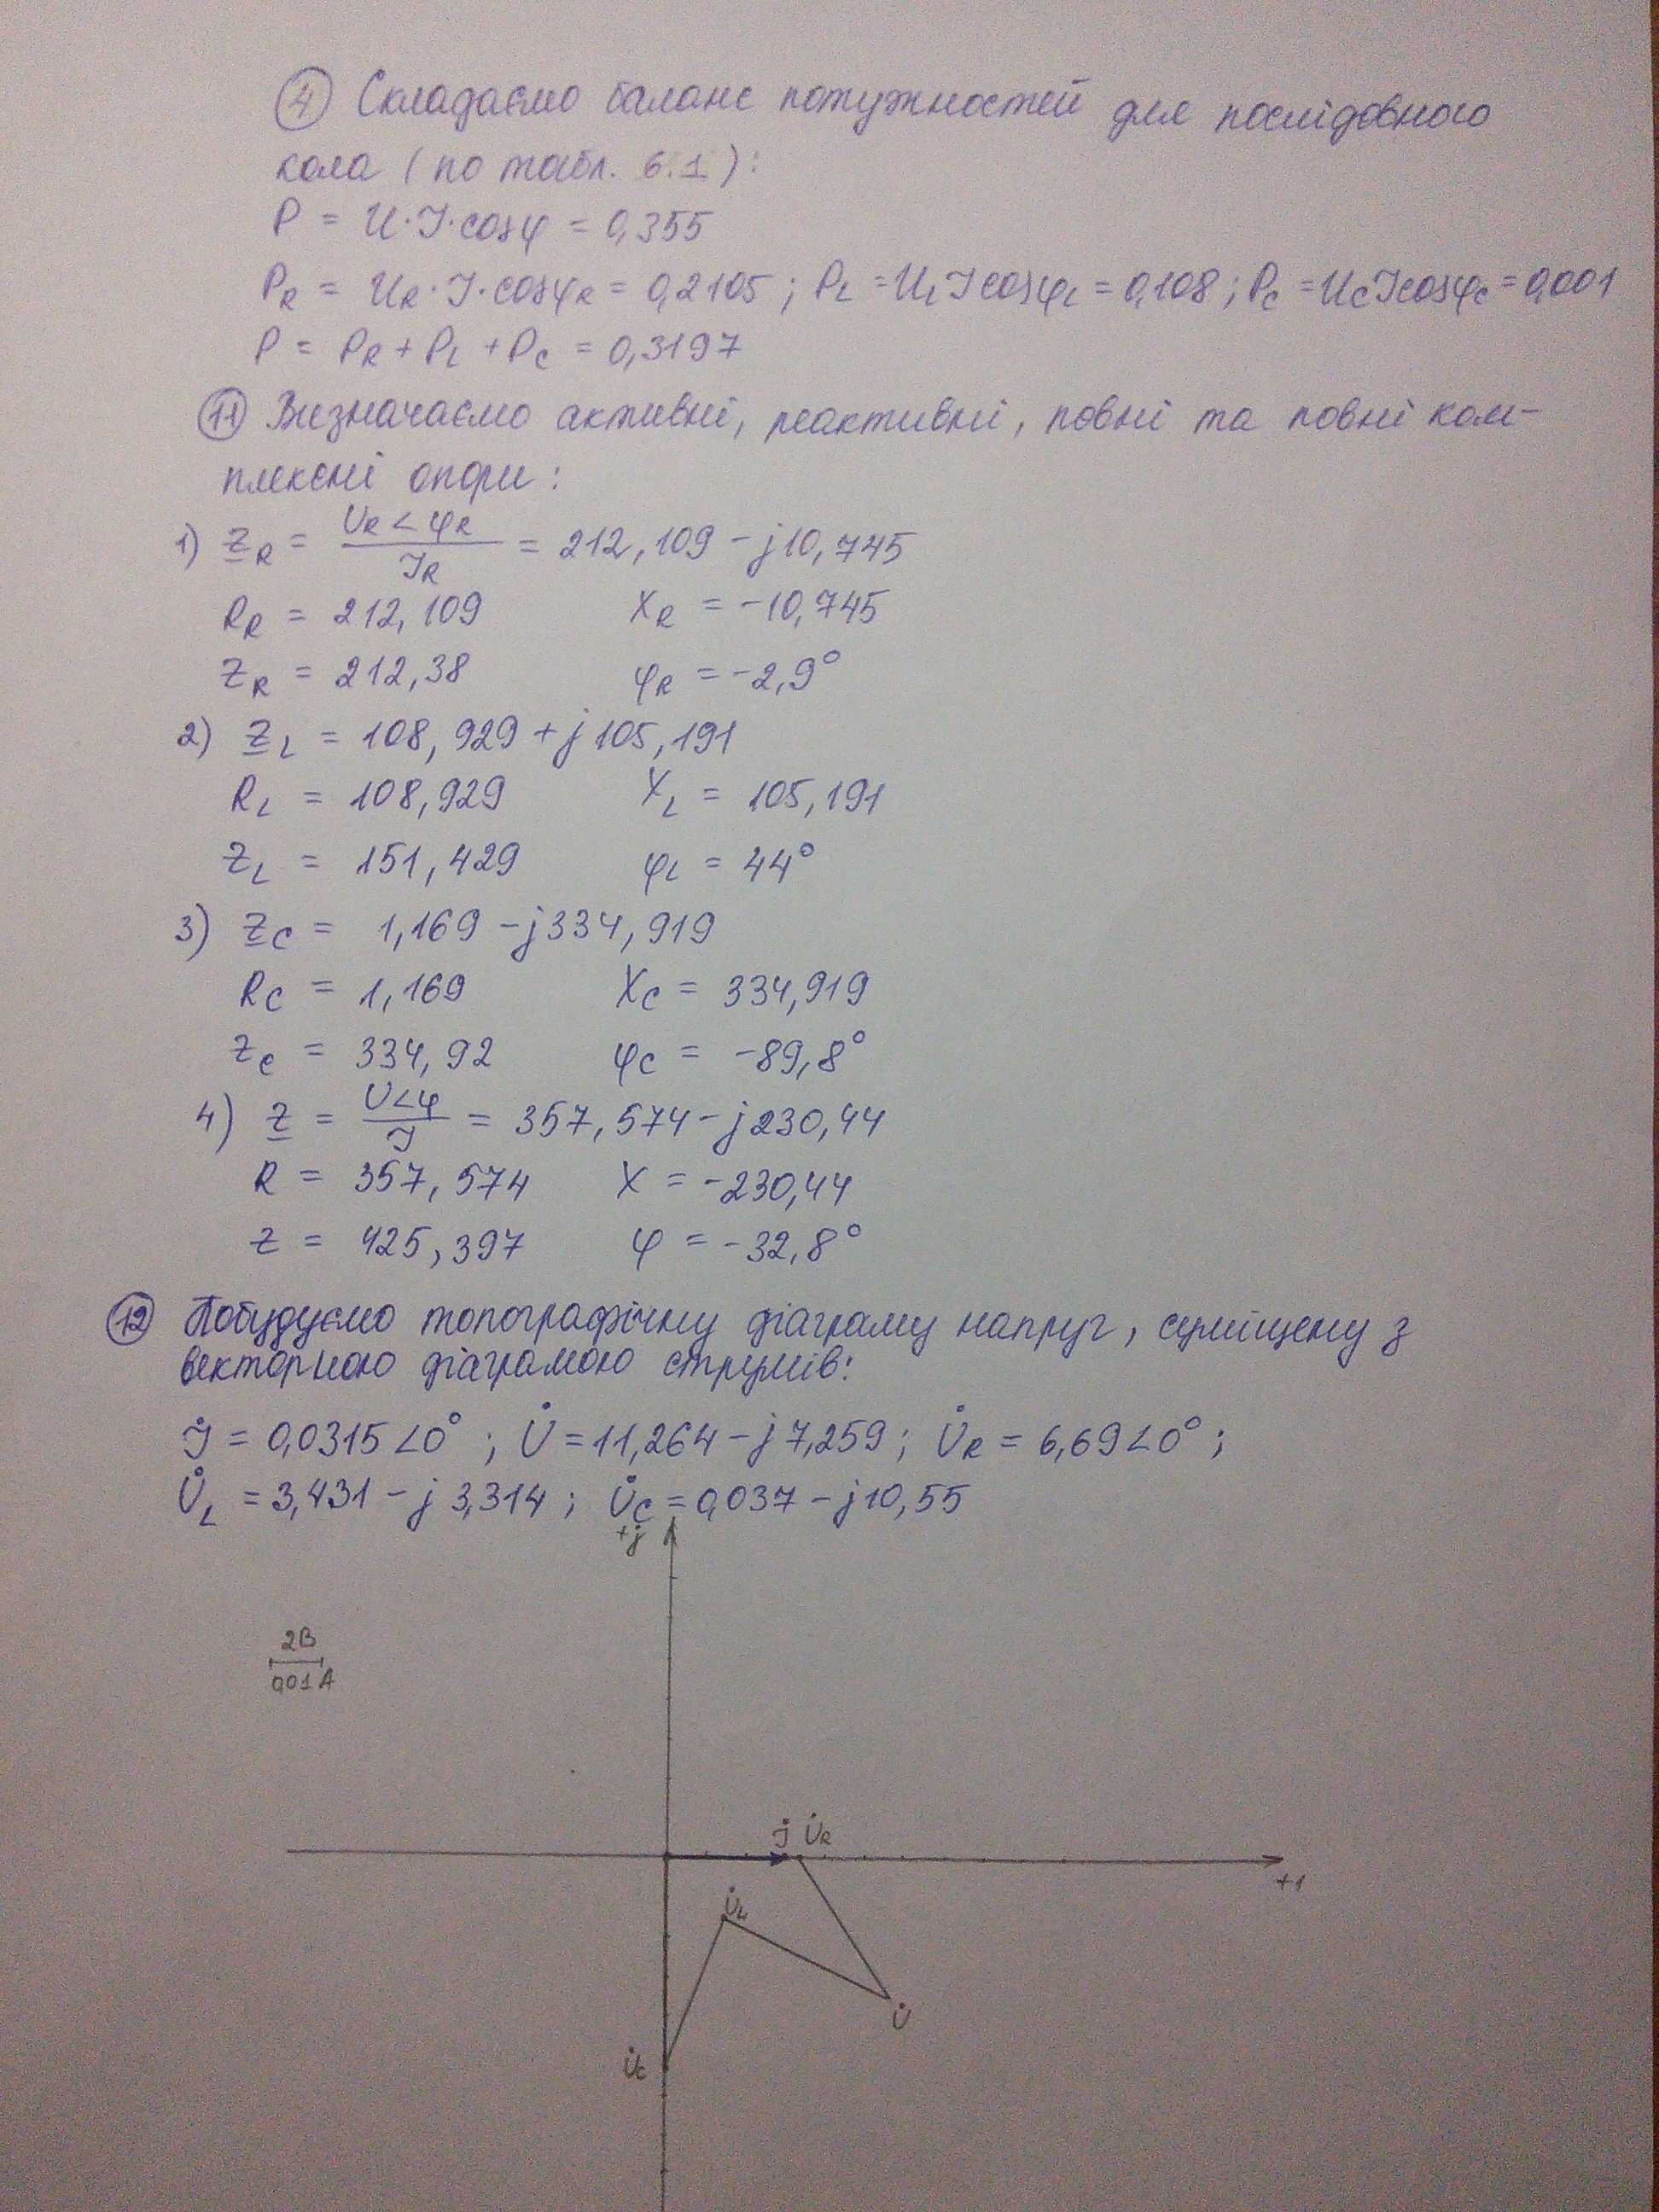 ④ Складаємо баланс потужностей для послідовного
кола (по табл. 6.1):
P = U·I·cosφ = 0,355
PR = UR·I·cosφR = 0,2105 ; PL = UL I cosφL = 0,108 ; PC = UC I cosφC = 0,001
P = PR + PL + PC = 0,3197
⑪ Визначаємо активні, реактивні, повні та повні ком-
плексні опори:
1) ZR = UR∠φR / IR = 212,109 - j10,745
RR = 212,109 XR = -10,745
ZR = 212,38 φR = -2,9°
2) ZL = 108,929 + j105,191
RL = 108,929 XL = 105,191
ZL = 151,429 φL = 44°
3) ZC = 1,169 - j334,919
RC = 1,169 XC = 334,919
ZC = 334,92 φC = -89,8°
4) Z = U∠φ / I = 357,574 - j230,44
R = 357,574 X = -230,44
Z = 425,397 φ = -32,8°
⑫ Побудуємо топографічну діаграму напруг, суміщену з
векторною діаграмою струмів:
İ = 0,0315∠0° ; U̇ = 11,264 - j7,259 ; U̇R = 6,69∠0° ;
U̇L = 3,431 - j3,314 ; U̇C = 0,037 - j10,55
+j
2В
0,01 А
İ U̇R
+1
U̇L
U̇
U̇C